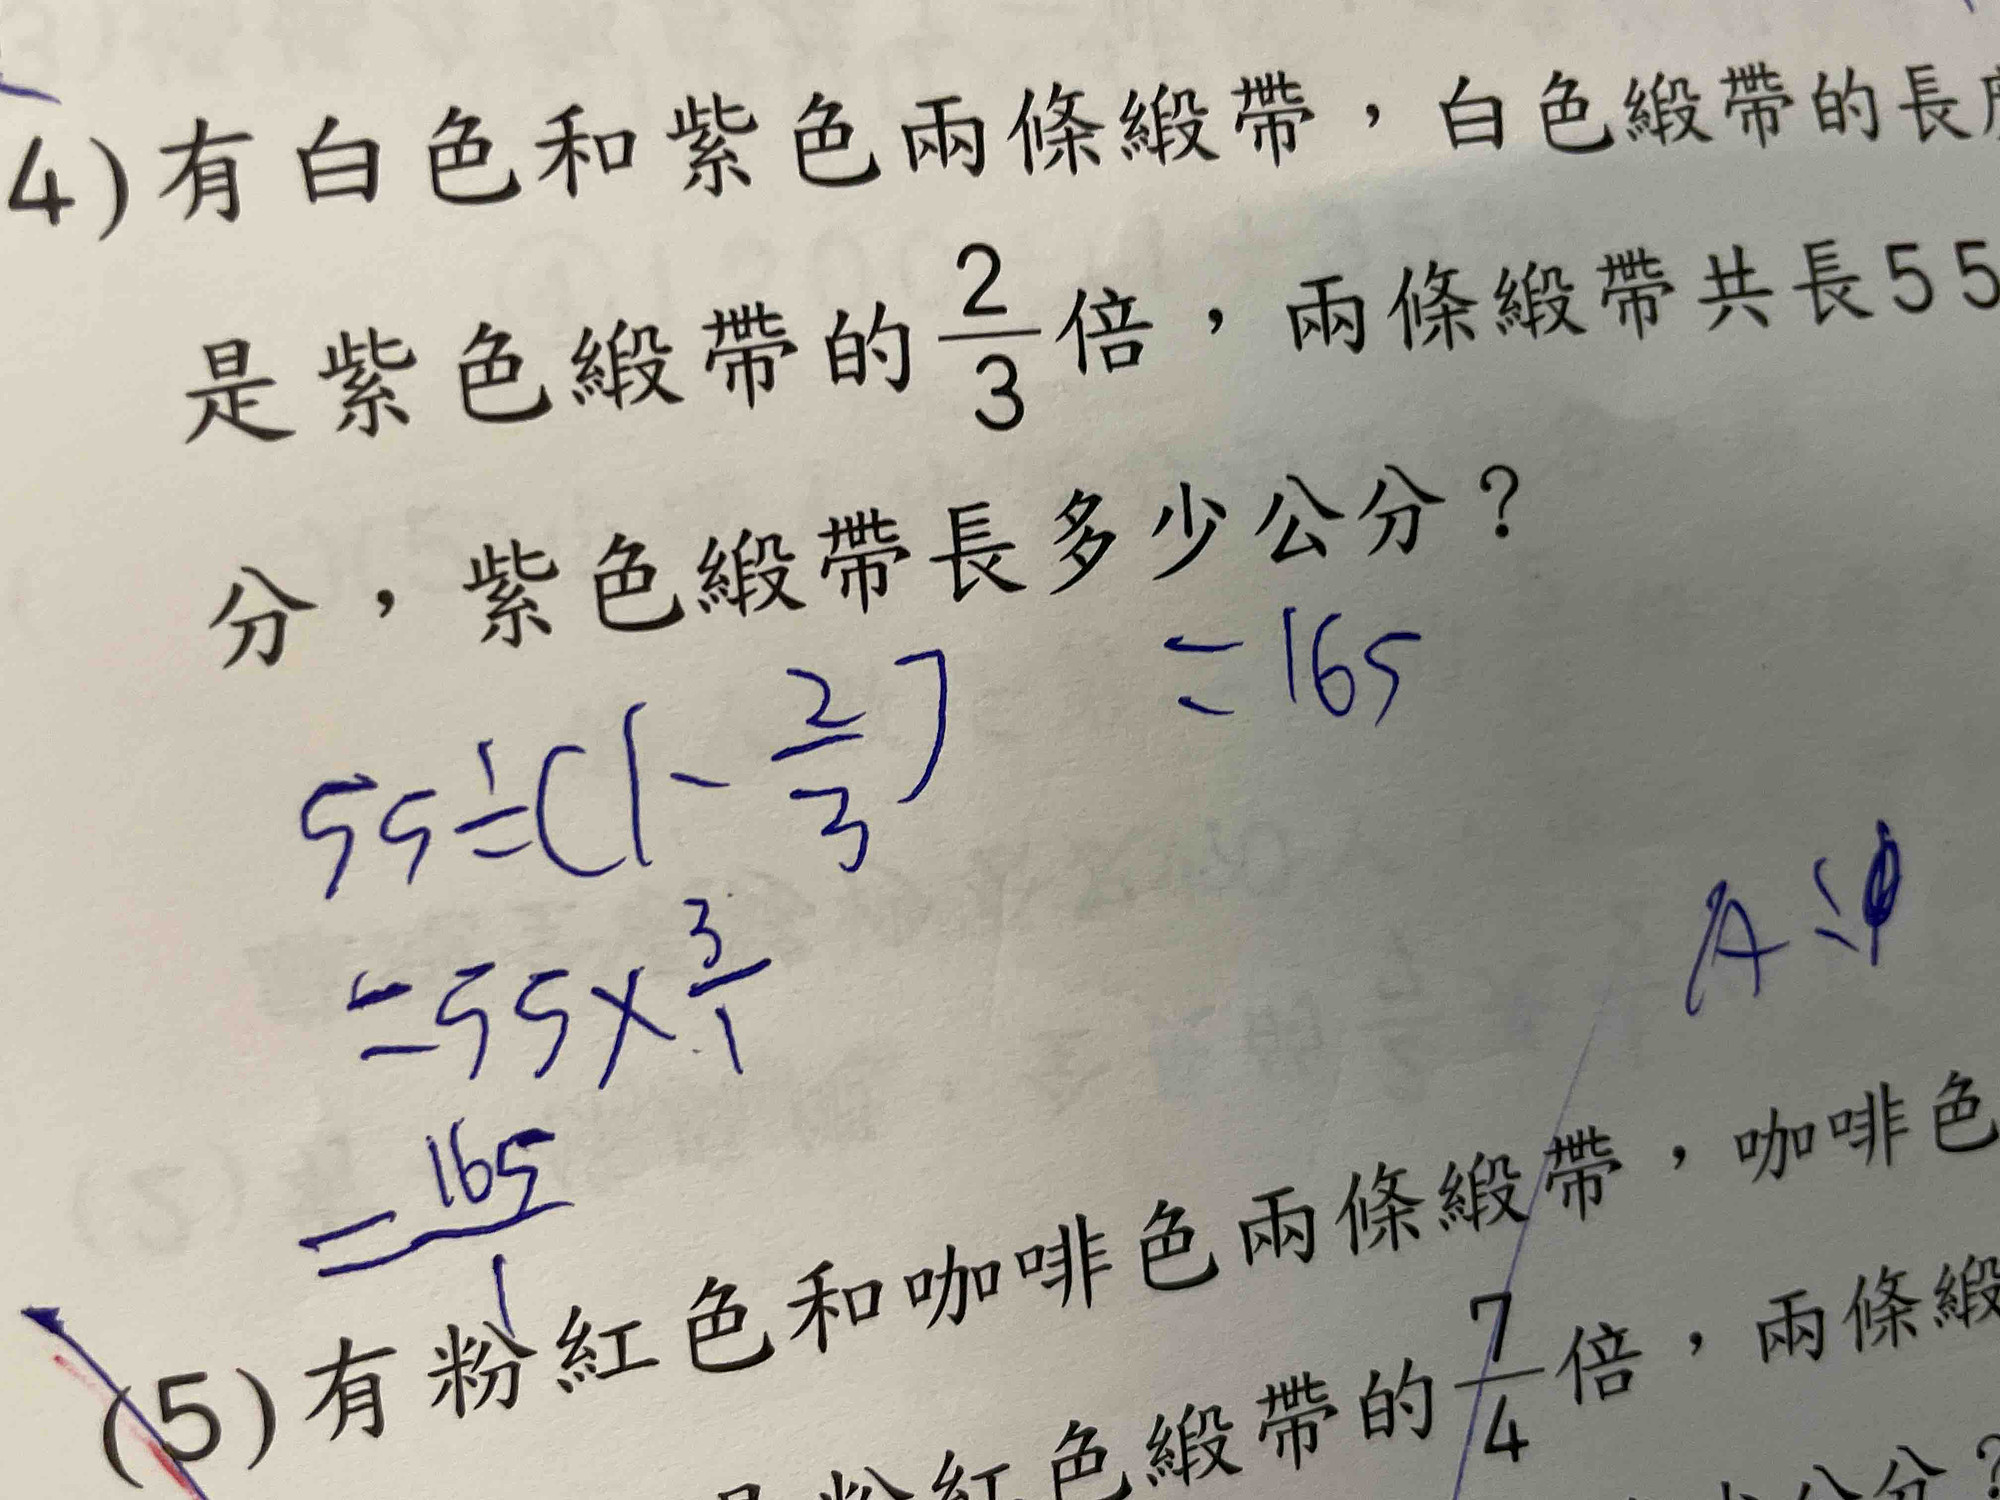 4)有白色和紫色兩條緞帶，白色緞帶的長
是紫色緞帶的2/3倍，兩條緞帶共長55
分，紫色緞帶長多少公分？
=165
55÷(1-2/3)
=55×3/1
=165/1
A:
(5)有粉紅色和咖啡色兩條緞帶，咖啡色
粉紅色緞帶的7/4倍，兩條緞
公分？